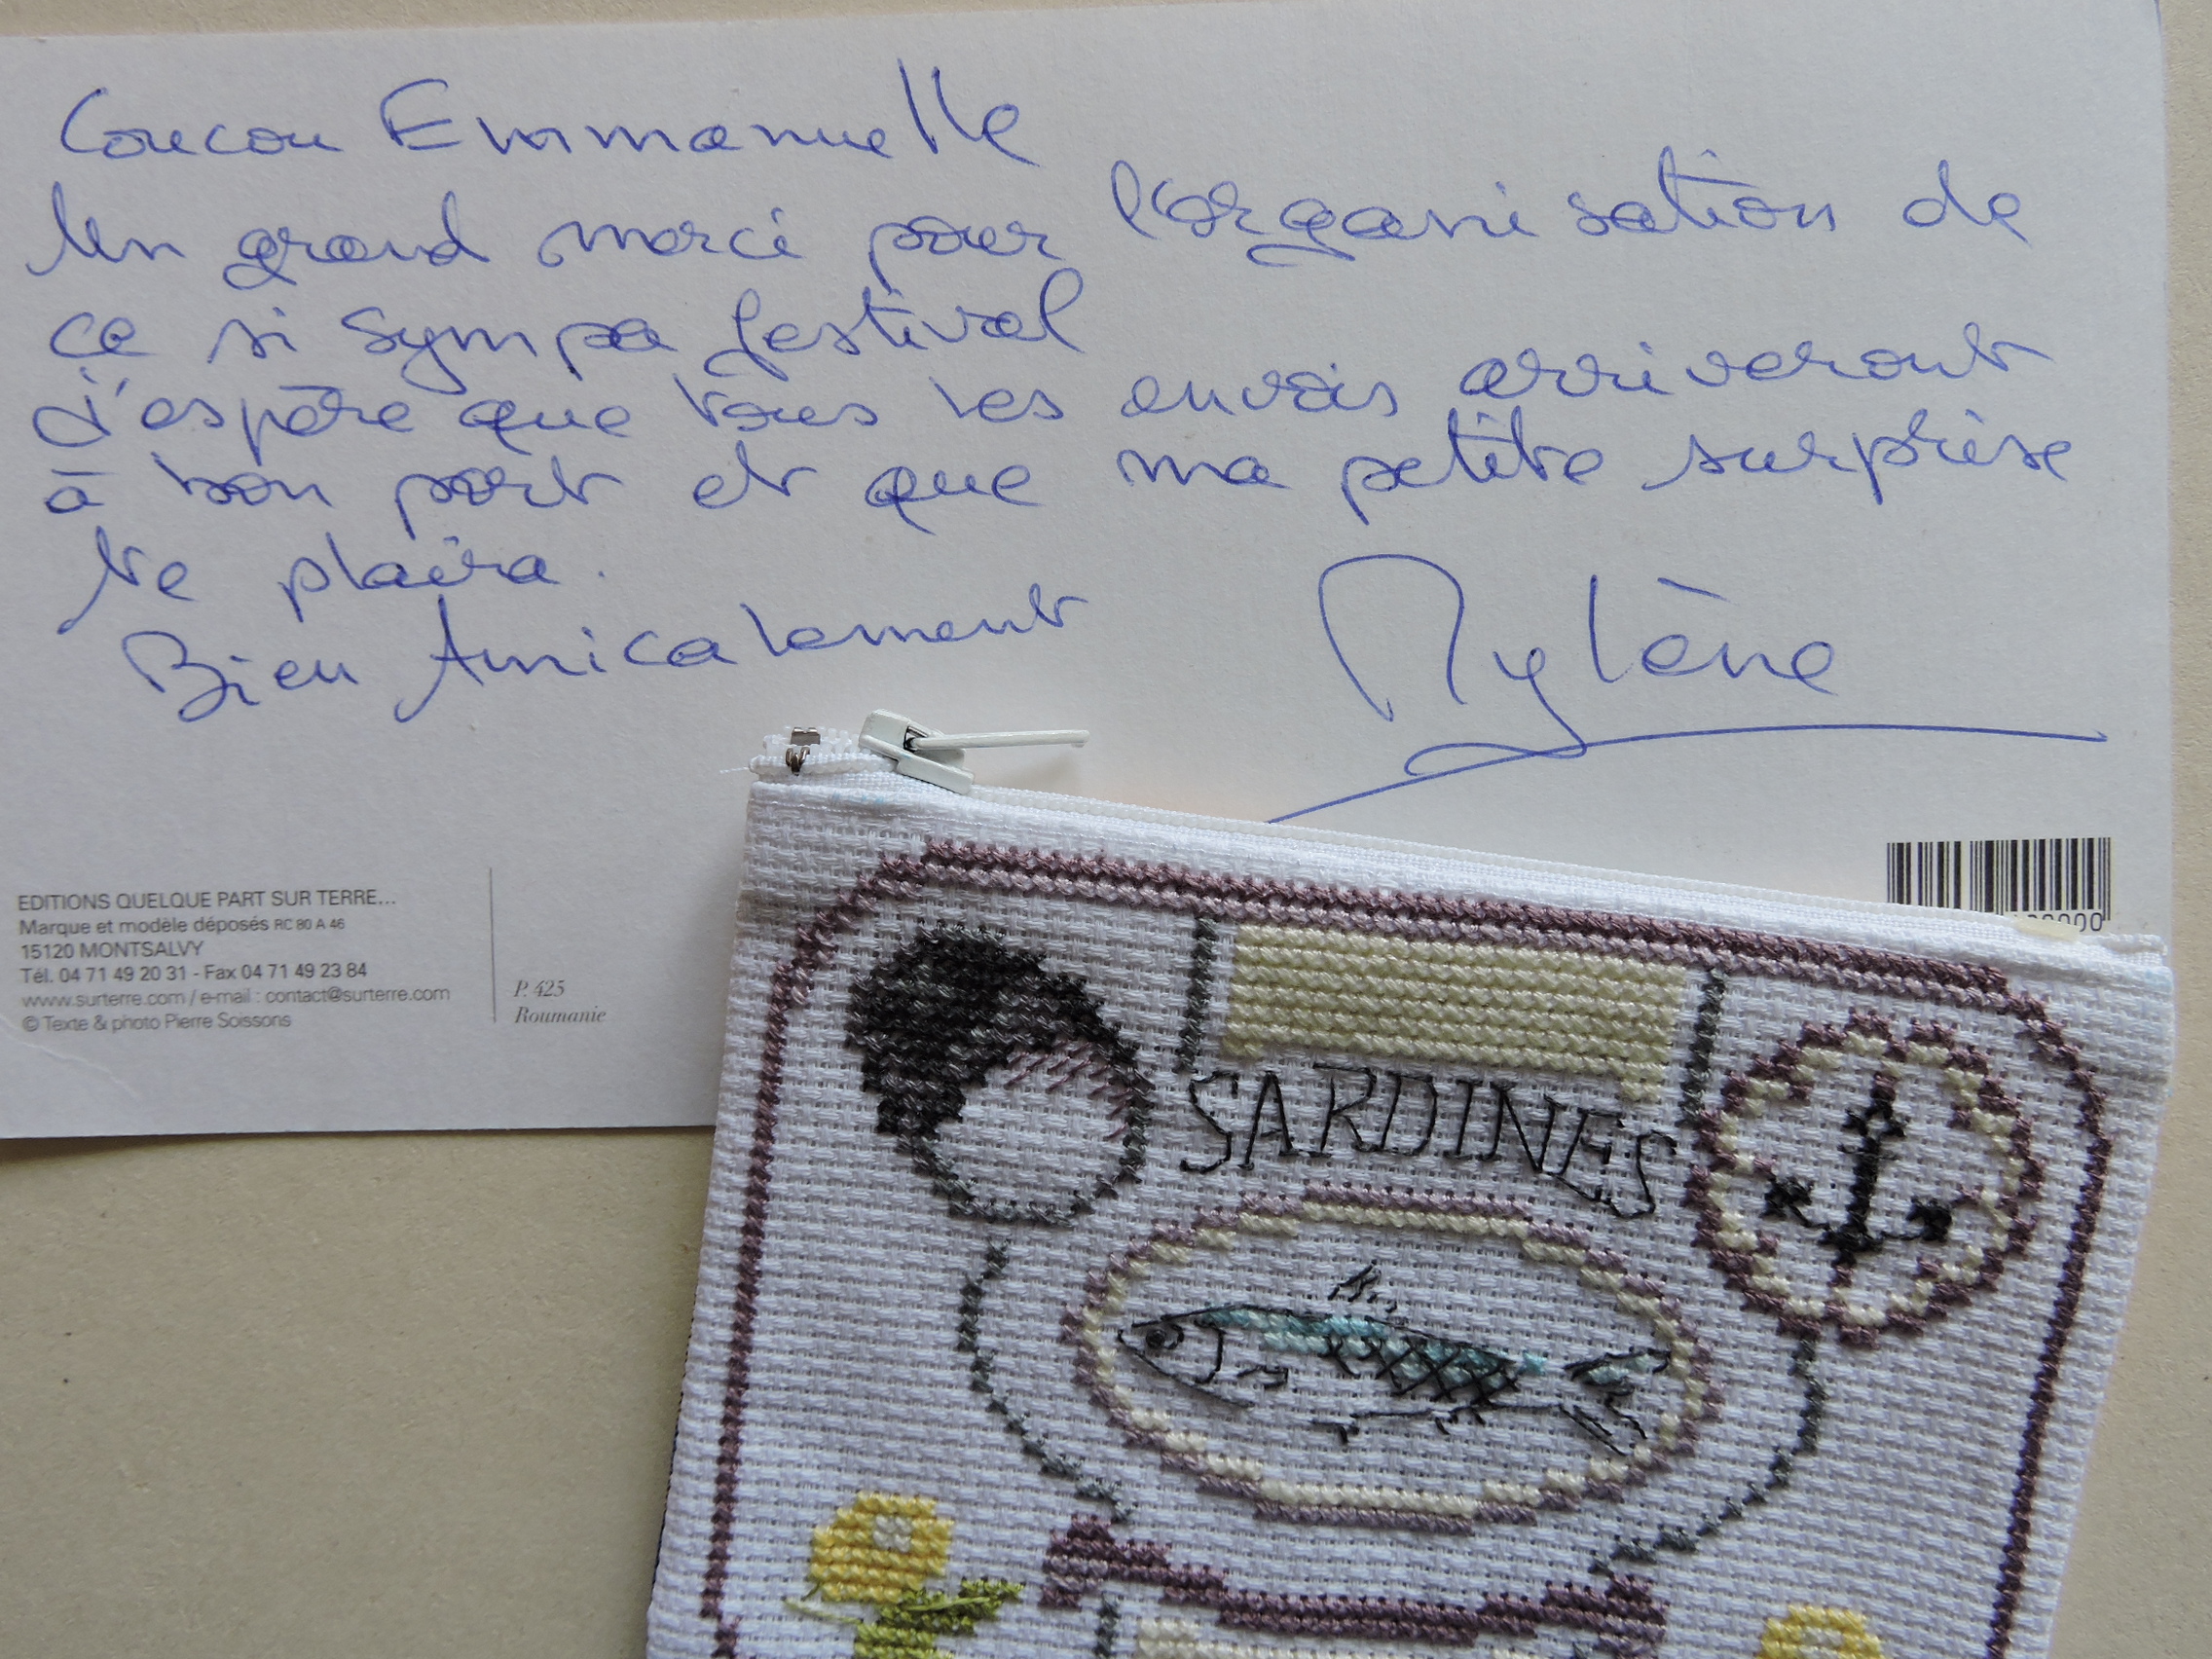 Coucou Emmanuelle
Un grand merci pour l'organisation de
ce si sympa festival
J'espère que tous les envois arriveront
à bon port et que ma petite surprise
te plaira.
Bien Amicalement
Mylène
EDITIONS QUELQUE PART SUR TERRE...
Marque et modèle déposés RC 80 A 46
15120 MONTSALVY
Tél. 04 71 49 20 31 - Fax 04 71 49 23 84
www.surterre.com / e-mail : contact@surterre.com
© Texte & photo Pierre Soissons
P. 425
Roumanie
SARDINES